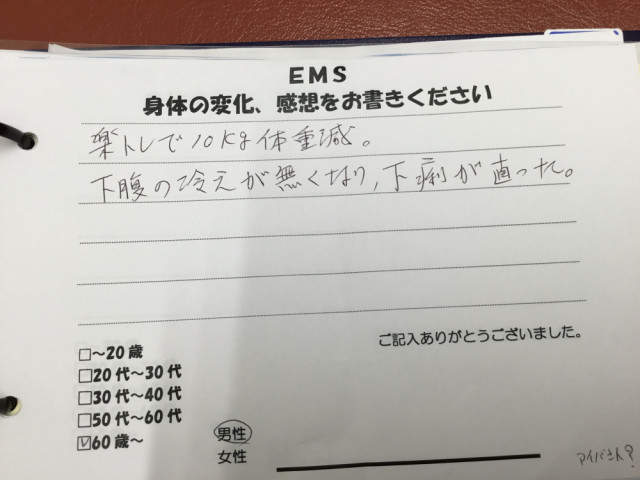 EMS
身体の変化、感想をお書きください
楽トレで10kg体重減。
下腹の冷えが無くなり,下痢が直った。
ご記入ありがとうございました。
□～20歳
□20代～30代
□30代～40代
□50代～60代
☑60歳～
男性
女性
アイバさん?